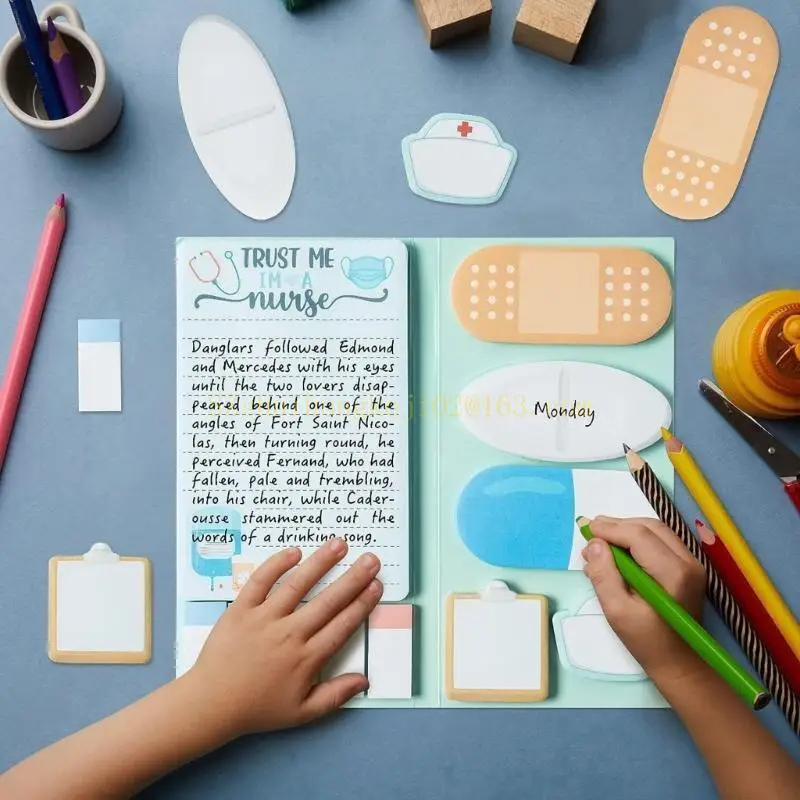 TRUST ME
I'M A
nurse
Danglars followed Edmond
and Mercedes with his eyes
until the two lovers disap-
peared behind one of the
angles of Fort Saint Nico-
las, then turning round, he
perceived Fernand, who had
fallen, pale and trembling,
into his chair, while Cader-
ousse stammered out the
words of a drinking song.
Monday